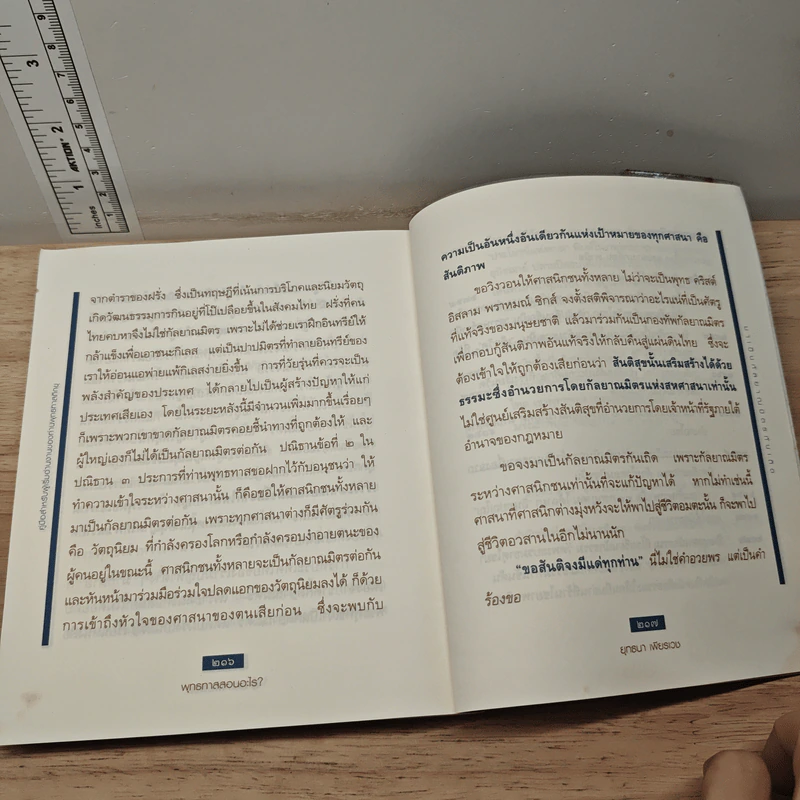 3
2
1
inches
AKTION
9
8
7
6
5
4
3
2
คู่มือสำหรับผู้เริ่มอ่านงานของท่านพุทธทาสภิกขุ
จากตำราของฝรั่ง ซึ่งเป็นทฤษฎีที่เน้นการบริโภคและนิยมวัตถุ
เกิดวัฒนธรรมการกินอยู่ที่โป๊เปลือยขึ้นในสังคมไทย ฝรั่งที่คน
ไทยคบหาจึงไม่ใช่กัลยาณมิตร เพราะไม่ได้ช่วยเราฝึกอินทรีย์ให้
กล้าแข็งเพื่อเอาชนะกิเลส แต่เป็นปาปมิตรที่ทำลายอินทรีย์ของ
เราให้อ่อนแอพ่ายแพ้กิเลสง่ายยิ่งขึ้น การที่วัยรุ่นที่ควรจะเป็น
พลังสำคัญของประเทศ ได้กลายไปเป็นผู้สร้างปัญหาให้แก่
ประเทศเสียเอง โดยในระยะหลังนี้มีจำนวนเพิ่มมากขึ้นเรื่อยๆ
ก็เพราะพวกเขาขาดกัลยาณมิตรคอยชี้นำทางที่ถูกต้องให้ และ
ผู้ใหญ่เองก็ไม่ได้เป็นกัลยาณมิตรต่อกัน ปณิธานข้อที่ ๒ ใน
ปณิธาน ๓ ประการที่ท่านพุทธทาสขอฝากไว้กับอนุชนว่า ให้
ทำความเข้าใจระหว่างศาสนานั้น ก็คือขอให้ศาสนิกชนทั้งหลาย
มาเป็นกัลยาณมิตรต่อกัน เพราะทุกศาสนาต่างก็มีศัตรูร่วมกัน
คือ วัตถุนิยม ที่กำลังครองโลกหรือกำลังครอบงำอายตนะของ
ผู้คนอยู่ในขณะนี้ ศาสนิกชนทั้งหลายจะเป็นกัลยาณมิตรต่อกัน
และหันหน้ามาร่วมมือร่วมใจปลดแอกของวัตถุนิยมลงได้ ก็ด้วย
การเข้าถึงหัวใจของศาสนาของตนเสียก่อน ซึ่งจะพบกับ
๒๑๖
พุทธทาสสอนอะไร?
ความเป็นอันหนึ่งอันเดียวกันแห่งเป้าหมายของทุกศาสนา คือ
สันติภาพ
ขอวิงวอนให้ศาสนิกชนทั้งหลาย ไม่ว่าจะเป็นพุทธ คริสต์
อิสลาม พราหมณ์ ซิกส์ จงตั้งสติพิจารณาว่าอะไรแน่ที่เป็นศัตรู
ที่แท้จริงของมนุษยชาติ แล้วมาร่วมกันเป็นกองทัพกัลยาณมิตร
เพื่อกอบกู้สันติภาพอันแท้จริงให้กลับคืนสู่แผ่นดินไทย ซึ่งจะ
ต้องเข้าใจให้ถูกต้องเสียก่อนว่า สันติสุขนั้นเสริมสร้างได้ด้วย
ธรรมะซึ่งอำนวยการโดยกัลยาณมิตรแห่งสหศาสนาเท่านั้น
ไม่ใช่ศูนย์เสริมสร้างสันติสุขที่อำนวยการโดยเจ้าหน้าที่รัฐภายใต้
อำนาจของกฎหมาย
ขอจงมาเป็นกัลยาณมิตรกันเถิด เพราะกัลยาณมิตร
ระหว่างศาสนิกชนเท่านั้นที่จะแก้ปัญหาได้ หากไม่ทำเช่นนี้
ศาสนาที่ศาสนิกต่างมุ่งหวังจะให้พาไปสู่ชีวิตอมตะนั้น ก็จะพาไป
สู่ชีวิตอวสานในอีกไม่นานนัก
“ขอสันติจงมีแด่ทุกท่าน” นี่ไม่ใช่คำอวยพร แต่เป็นคำ
ร้องขอ
๒๑๗
ยุทธนา เพียรเวช